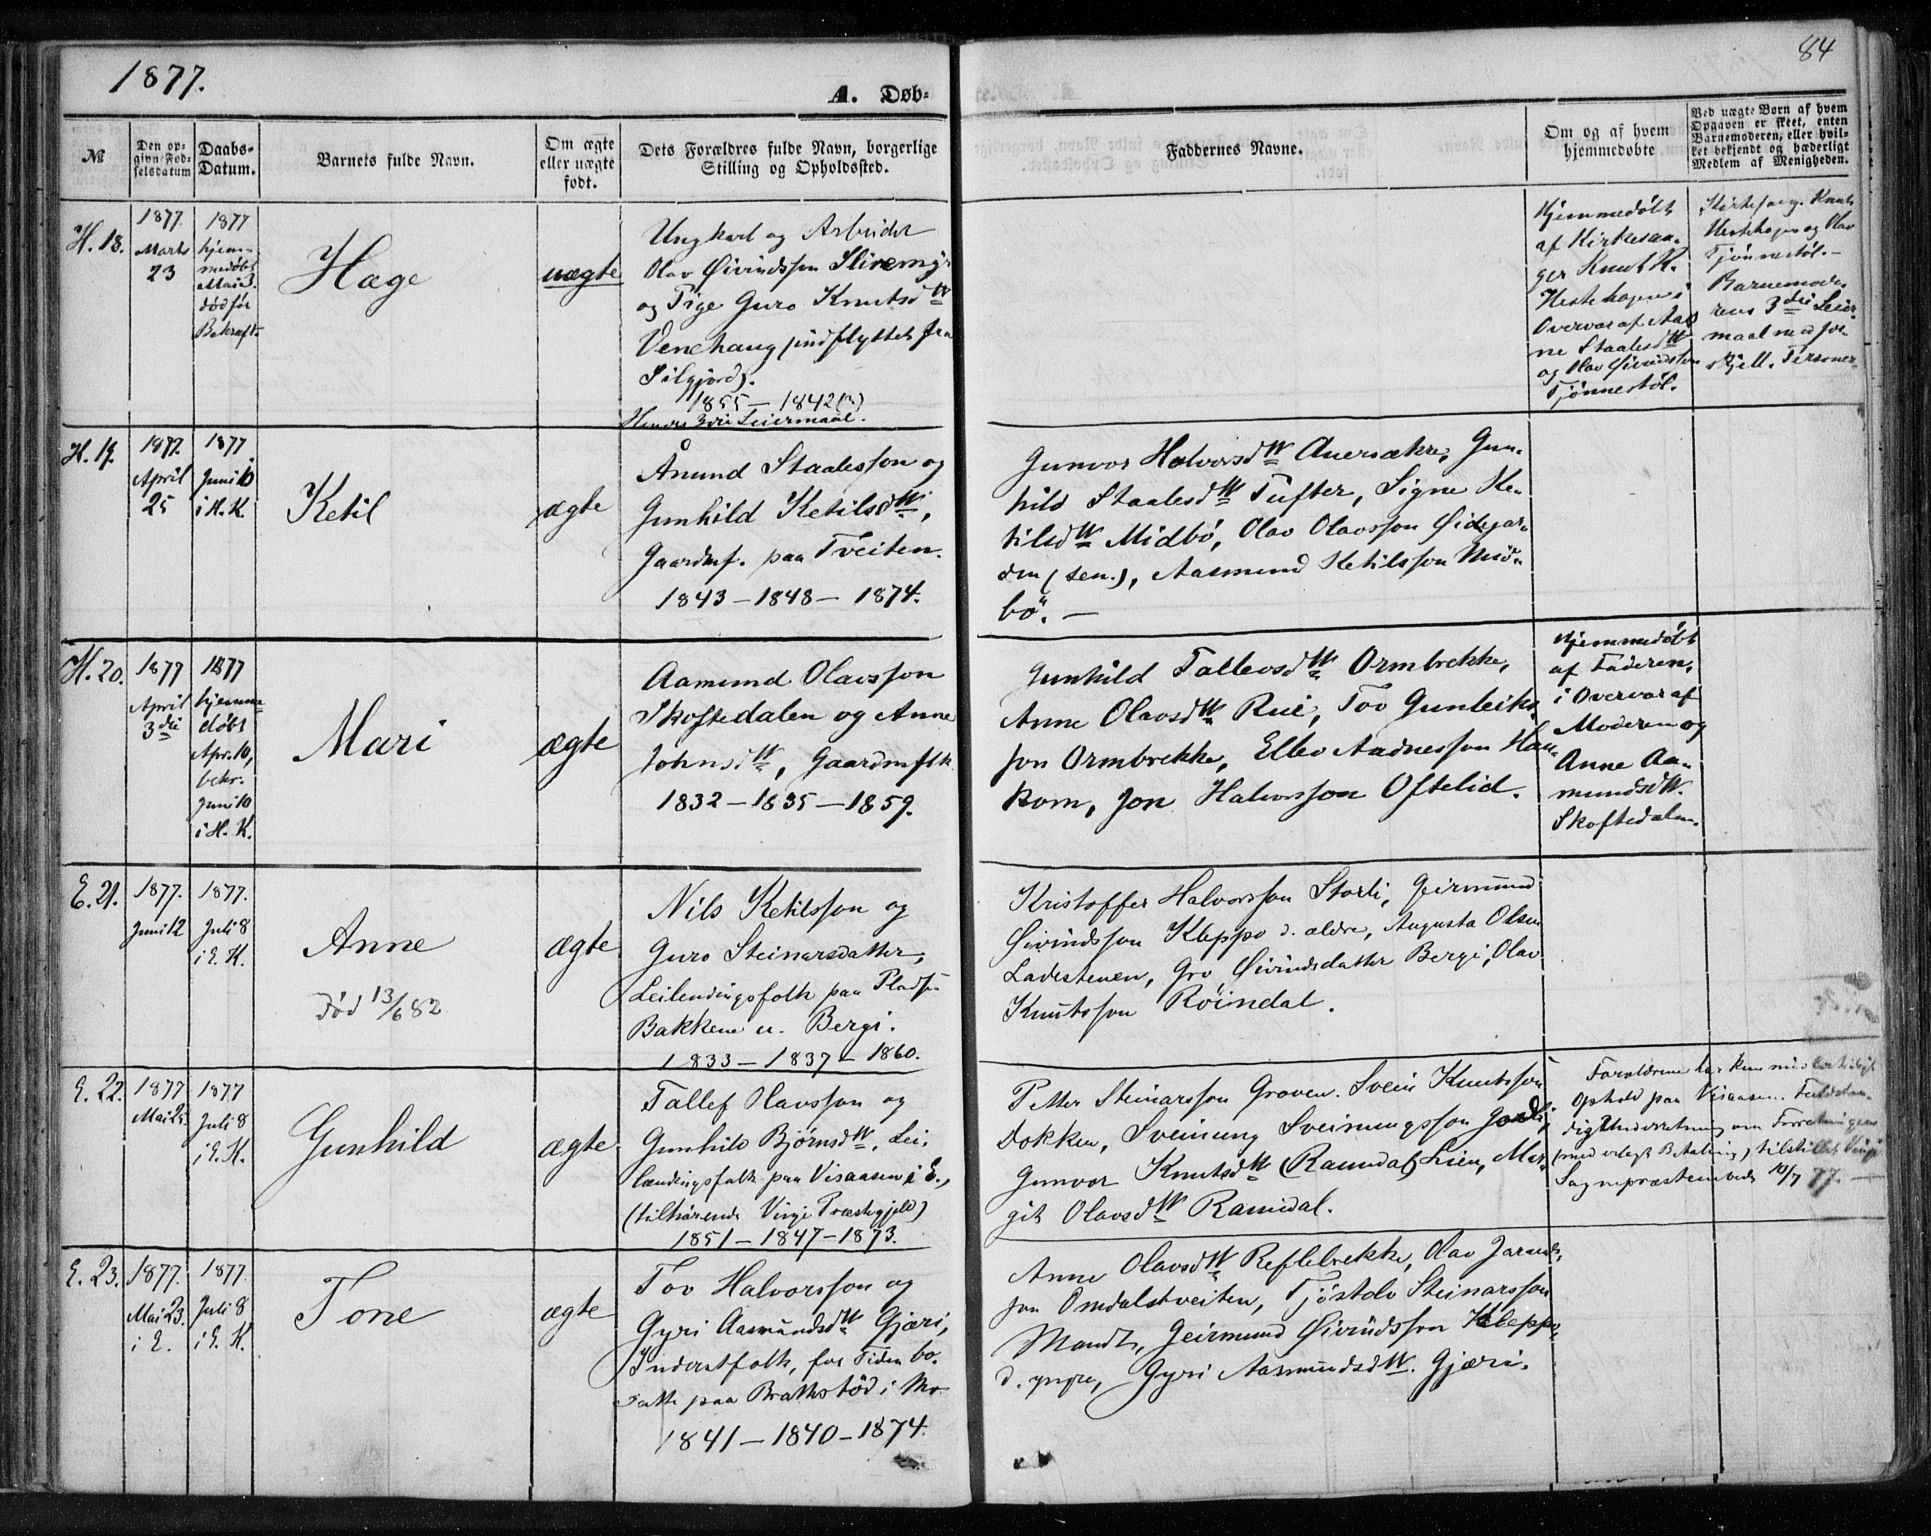 1877.
A. Døb-
84
№
Den op-
givne Fød-
selsdatum
Daabs-
Datum.
Barnets fulde Navn.
Om ægte
eller uægte
født.
Dets Forældres fulde Navn, borgerlige
Stilling og Opholdssted.
Faddernes Navne.
Om og af hvem
hjemmedøbte
Ved uægte Børn af hvem
Opgaven er skeet, enten
Barnemoderen, eller hvil-
ket bekjendt og hæderligt
Medlem af Menigheden.
H. 18.
1877
Marts
23
1877
hjem-
medøbt
Mai 3.
død før
Bekræft.
Hæge
uægte
Ungkarl og Arbeider
Olav Øivindsson
og Pige Guro Knutsd.
Venehaug (indflyttet fra
Silgjord).
1855 – 1842
Hendes 3die Leiermaal.
Hjemmedøbt
af Kirkesan-
ger Knut K.
Hestehagen i
Overvær af Aas
ne Staalesd.
og Olav Øivindsson
Tjønnestøl.
Kirkesang. Knut
Hestehagen og Olav
Tjönnestöl. –
Barnemode-
rens 3die Leier-
maal med for-
skjell. Personer.
H. 19.
1877.
April
25
1877
Juni 10
i H. K.
Ketil
ægte
Ånund Staalesson og
Gunhild Ketilsd.,
Gaardmf. paa Tveiten.
1843 – 1848 – 1874.
Gunvor Halvorsd. Aueråkre, Gun-
hild Staalesd. Tufter, Signe Ke-
tilsd. Midbö, Olav Olavsson Øidegar-
den (sen.), Aasmund Ketilsson Mid-
bö. –
H. 20.
1877
April
3die
1877
hjemme
døbt
Apr. 10,
bekr.
Juni 10
i H. K.
Mari
ægte
Aamund Olavsson
Skoftedalen og Anne
Johnsd., Gaardmflk.
1832 – 1835 – 1859.
Gunhild Tallevsd. Ormbrekke,
Anne Olavsd. Rui, Tov Gunleiks
son Ormbrekke, Ellev Aadnesson Hau-
kom, Jon Halvorsson Oftelid.
Hjemmedøbt
af Faderen,
i Overvær af
Moderen og
Anne Aa-
mundsd.
Skoftedalen.
E. 21.
1877.
Juni 12
1877.
Juli 8
i E. K.
Anne
Død 13/6 82
ægte
Nils Ketilsson og
Guro Steinarsdatter,
Leilendingsfolk paa Pladsen
Bakkene u. Bergi.
1833 – 1837 – 1860.
Kristoffer Halvorsson Storli, Geirmund
Øivindsson Kleppo d. ældre, Augusta Olsen
Ladestenen, Gro Øivindsdatter Bergi, Olav
Knutsson Röindal.
E. 22.
1877
Mai 25.
1877
Juli 8
i E. K.
Gunhild
ægte
Tallef Olavsson og
Gunhild Bjørnsd., Lei-
lændingsfolk paa Visaasen i E.,
(tilhørende Vinje Præstegjeld)
1851 – 1847 – 1873.
Petter Steinarsson Groven. Svein Knutsson
Dokken, Sveinung Sveinungsson Jordli,
Gunvor Knutsd. (Ramdal) Lien, Mar-
git Olavsd. Ramdal.
Forældrene har kun midlertidigt
Ophold paa Visaasen. Fuldstæn-
dig Underretning om Forretningen
(med erlagt Betaling) tilstillet Vinje
Sognepræstembede 10/7 77. –
E. 23.
1877.
Mai 23.
i E.
1877.
Juli 8
i E. K.
Tone
ægte
Tov Halvorsson og
Gyri Aasmundsd. Gjæri,
Inderstfolk, for Tiden bo-
satte paa Brathstöd i Mo
1841 – 1840 – 1874.
Anne Olavsd. Reflebrekke, Olav Jarands-
son Omdalstveiten, Tjöstolv Steinarsson
Mandt, Geirmund Øivindsson Kleppo
d. yngre, Gyri Aasmundsd. Gjæri.